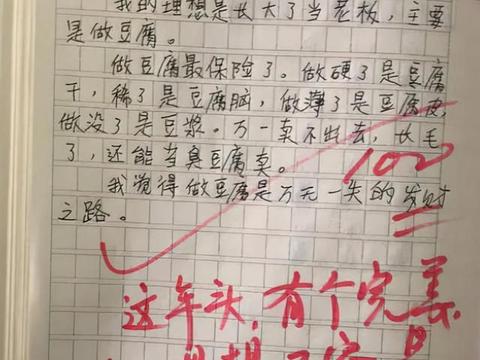 我的理想是长大了当老板，主要
是做豆腐。
做豆腐最保险了。做硬了是豆腐
干，稀了是豆腐脑，做薄了是豆腐皮，
做没了是豆浆。万一卖不出去，长毛
了，还能当臭豆腐卖。
100
我觉得做豆腐是万无一失的发财
之路。
这年头，有个完美